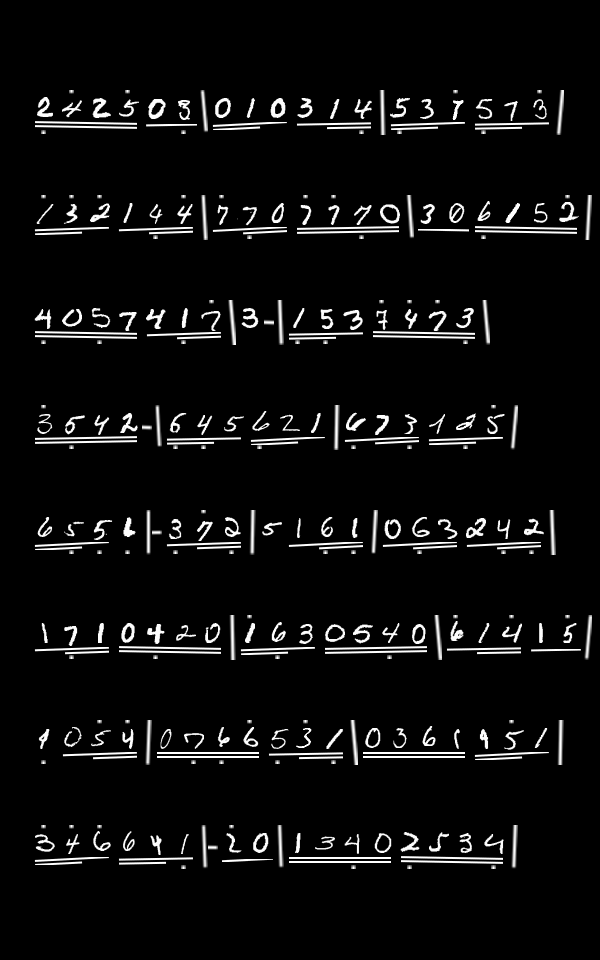 242503|010314|537573
132144|7707770|306152
4057417|3-|1537473
3542-|645621|673125
6551|-372|5161|063242
1710420|1630540|61415
1054|0766531|0361151
346641|-20|13402534